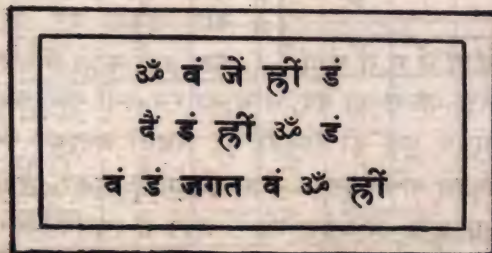 ॐ वं जें ह्रीं डं
वैं डं ह्रीं ॐ डं
वं डं जगत वं ॐ ह्रीं